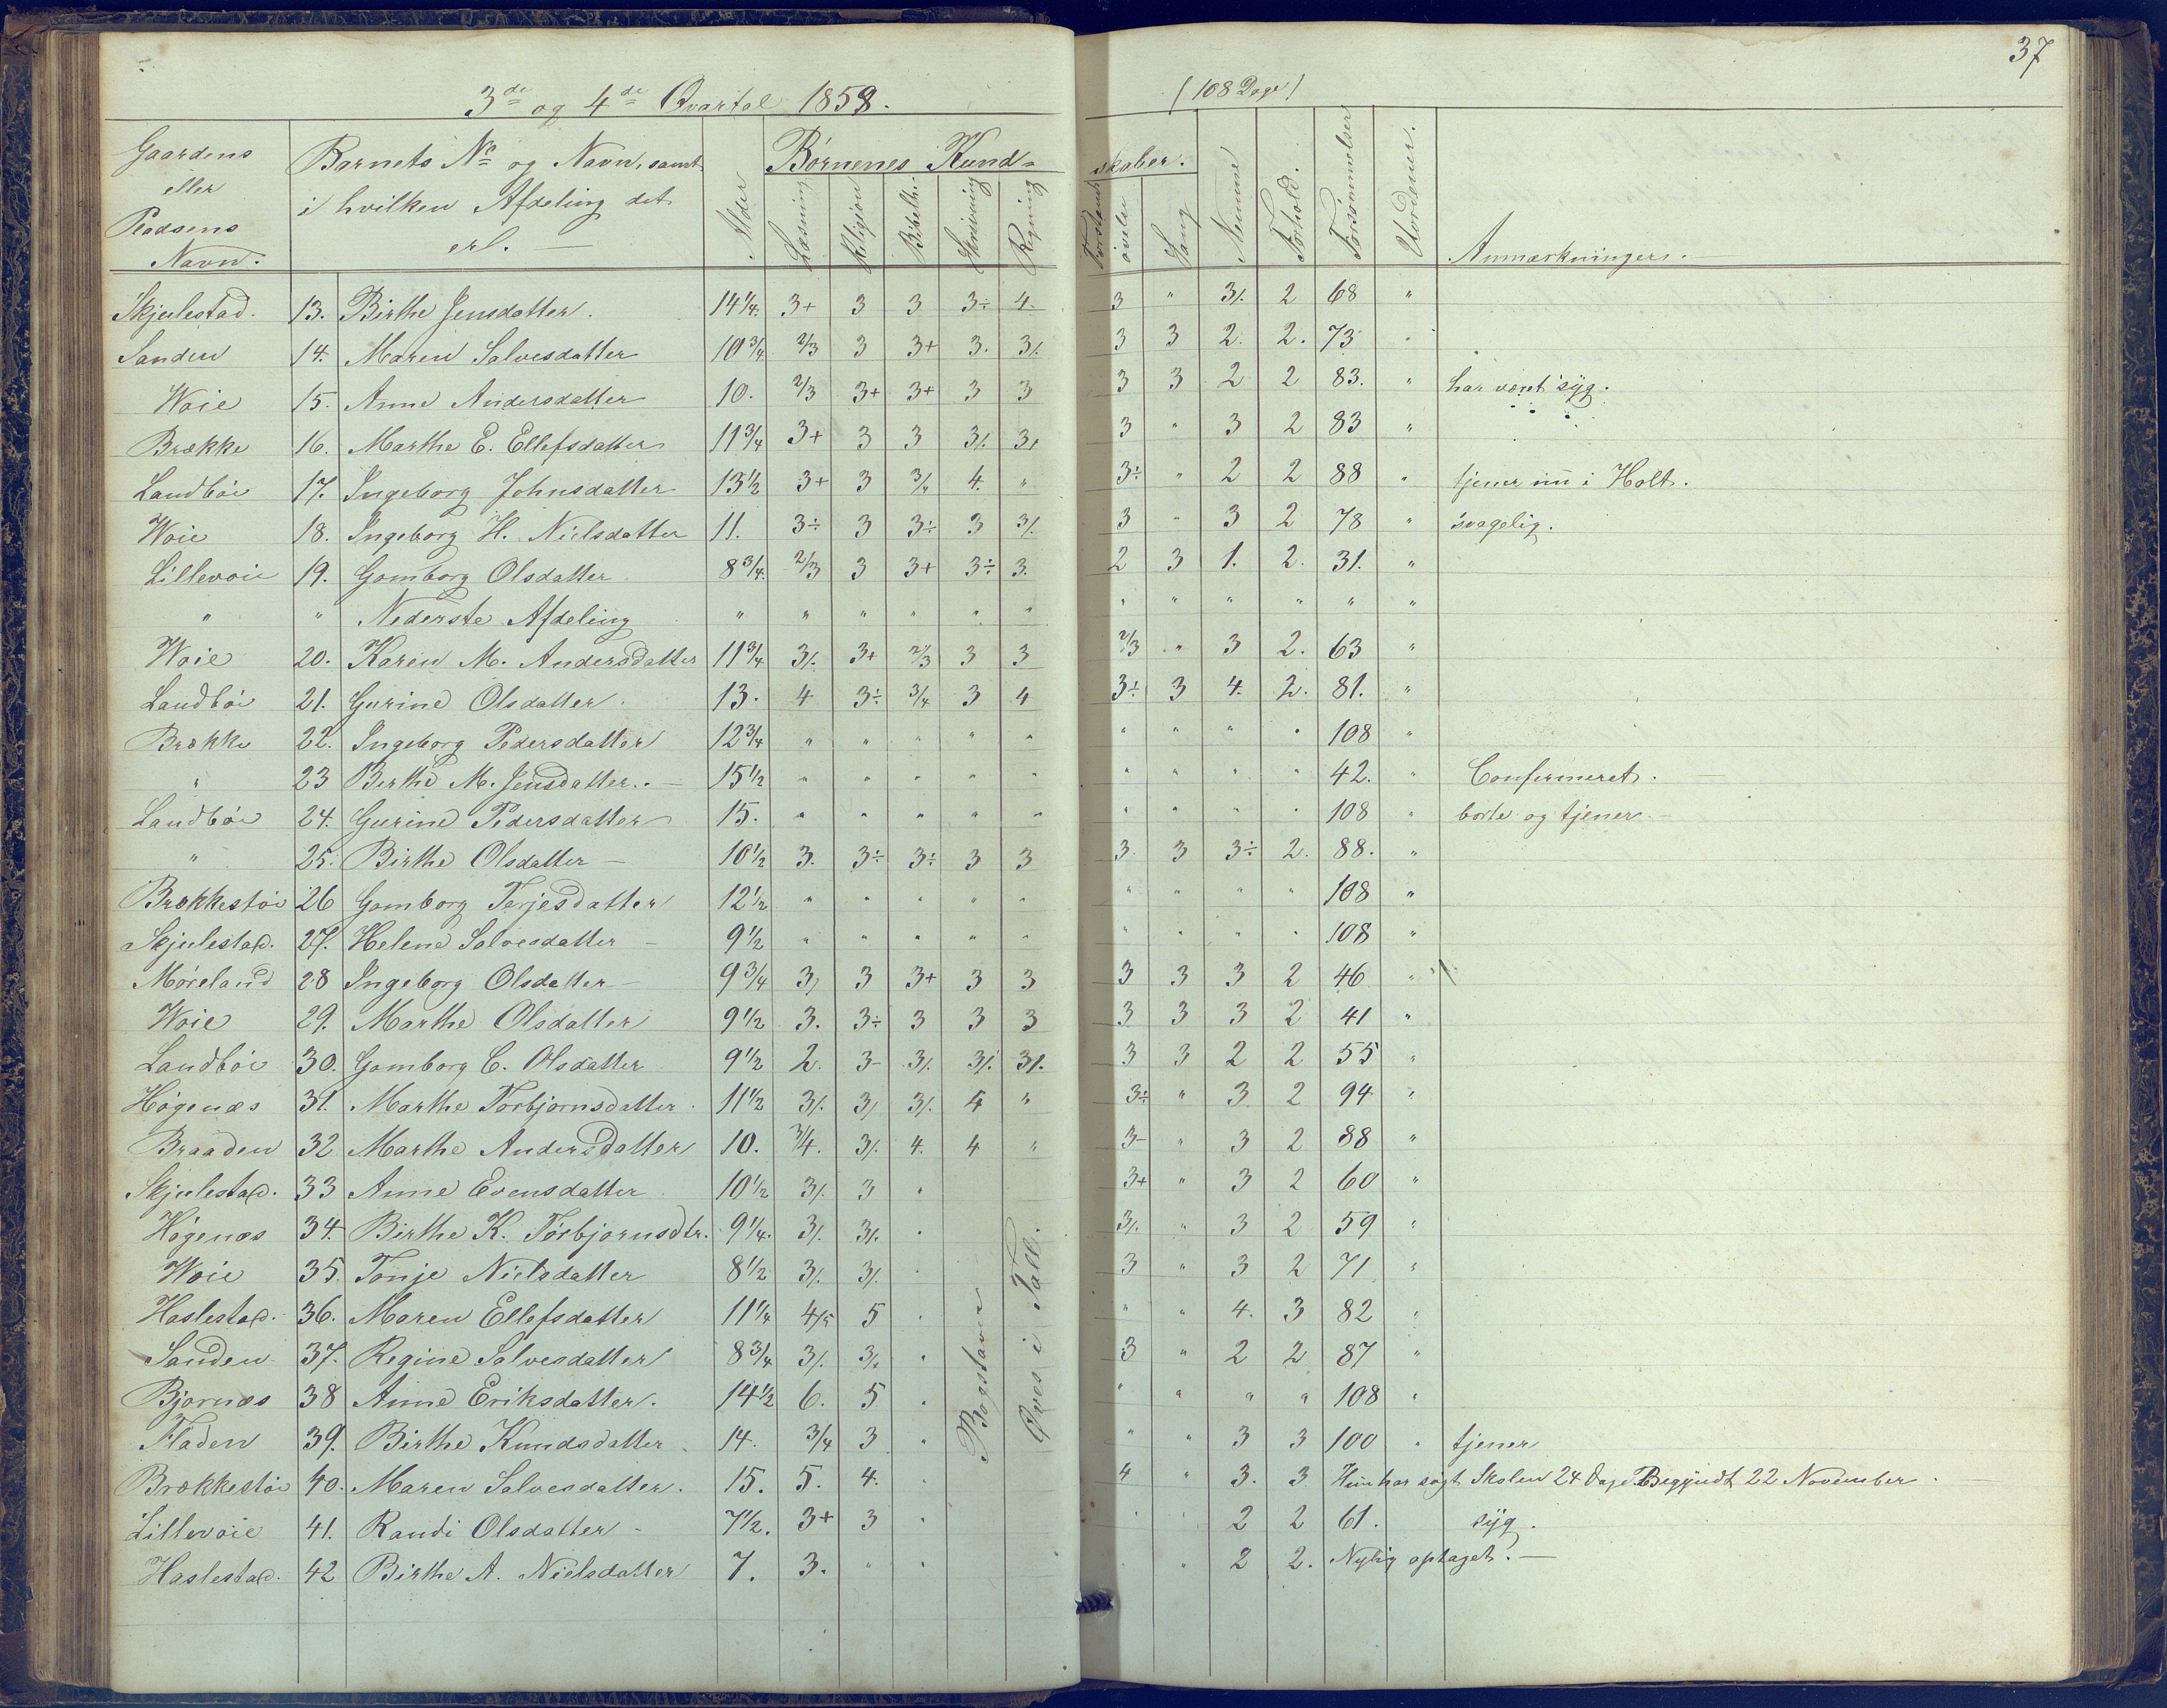 37
3de og 4de Qvartal 1858. (108 Dage)
Gaardens eller Pladsens Navn. | Barnets No og Navn, samt i hvilken Afdeling det er. | Alder | Børnenes Kundskaber. | Læsning | Religion | Bibelh. | Skrivning | Regning | Forstands øvelse | Sang | Nemme | Forhold. | Forsømmelser | Uordener. | Anmærkninger.
Skjulestad. 13. Birthe Jensdatter. 14 1/4. 3+ 3 3 3÷ 4. 3 " 3/. 2 68 "
Sanden 14. Maren Salvesdatter 10 3/4. 2/3 3 3+ 3. 3/. 3 3 2. 2. 73 "
Woie 15. Anne Andersdatter 10. 2/3 3+ 3+ 3 3 3 3 2 2 83. " har været syg.
Brække 16. Marthe E. Ellefsdatter 11 3/4 3+ 3 3 3/. 3+ 3 " 3 2 83 "
Landbøe 17. Ingeborg Johnsdatter 13 1/2 3+ 3 3/4 4. " 3÷ " 2 2 88 " tjener nu i Holt.
Woie 18. Ingeborg H. Nielsdatter 11. 3÷ 3 3÷ 3 3/. 3 " 3 2 78 " svagelig.
Lillevoie 19. Gomborg Olsdatter 8 3/4. 2/3 3 3+ 3÷ 3. 2 3 1. 2. 31. "
" " Nederste Afdeling " " " " " " " " " " " "
Woie 20. Karen M. Andersdatter 11 3/4 3/. 3+ 2/3 3 3 2/3 " 3 2. 63 "
Landbøe 21. Gurine Olsdatter 13. 4 3÷ 3/4 3 4 3÷ 3 4. 2. 81. "
Brække 22. Ingeborg Pedersdatter 12 3/4 " " " " " " " " " 108 "
" 23 Birthe M. Jensdatter. 15 1/2 " " " " " " " " " 42. " Confirmeret.
Landbøe 24. Gurine Pedersdatter 15. " " " " " " " " " 108 " borte og tjener.
" 25. Birthe Olsdatter 10 1/2 3. 3÷ 3÷ 3 3 3. 3 3÷ 2. 88. "
Brækkestøe 26 Gomborg Terjesdatter 12 1/2 " " " " " " " " " 108 "
Skjulestad. 27. Helene Salvesdatter 9 1/2 " " " " " " " " " 108 "
Møreland 28 Ingeborg Olsdatter 9 3/4 3/ 3 3+ 3 3 3 3 3 2 46 "
Woie 29. Marthe Olsdatter 9 1/2 3. 3÷ 3 3 3 3 3 3 2 41 "
Landbøe 30. Gomborg C. Olsdatter 9 1/2 2. 3- 3/. 3/. 3/. 3 3 2 2 55 "
Høgenæs 31. Marthe Torbjørnsdatter. 11 1/2 3/. 3/ 3/. 4 " 3÷ " 3 2 94 "
Braaden 32 Marthe Andersdatter 10. 3/4. 3/. 4. 4 " 3- " 3 2 88 "
Skjulestad. 33 Anne Evensdatter 10 1/2 3/. 3 " 3+ " 3 2 60 "
Høgenæs 34. Birthe K. Torbjørnsdtr. 9 1/4. 3/. 3/. " 3/. " 3 2 59 "
Woie 35. Tonje Nielsdatter 8 1/2 3/. 3/. " 3 " 3 2 71 "
Haslestad. 36. Maren Ellefsdatter 11 1/4 4/5 5 " " " 4. 3 82 "
Sanden 37. Regine Salvesdatter 8 3/4 3/. 3/. " 3 " 2 2 87 "
Bjørnæs 38 Anne Eriksdatter. 14 1/2 6. 5 " " " " " 108 "
Fladen 39. Birthe Knudsdatter 14. 3/4 3 " " " 3 3 100 " tjener
Brækkestøe 40. Maren Salvesdatter. 15. 5. 4. " 4 " 3. 3 Hun har søgt Skolen 24 Dage. Begyndt 22 November.
Lillevoie 41. Randi Olsdatter 7 1/2. 3+ 3 " " " 2 2 61. syg.
Haslestad. 42 Birthe A. Nielsdatter 7. 3. " " " " 2 2. Nylig optaget.
Bogstaver
Øves i Tall.